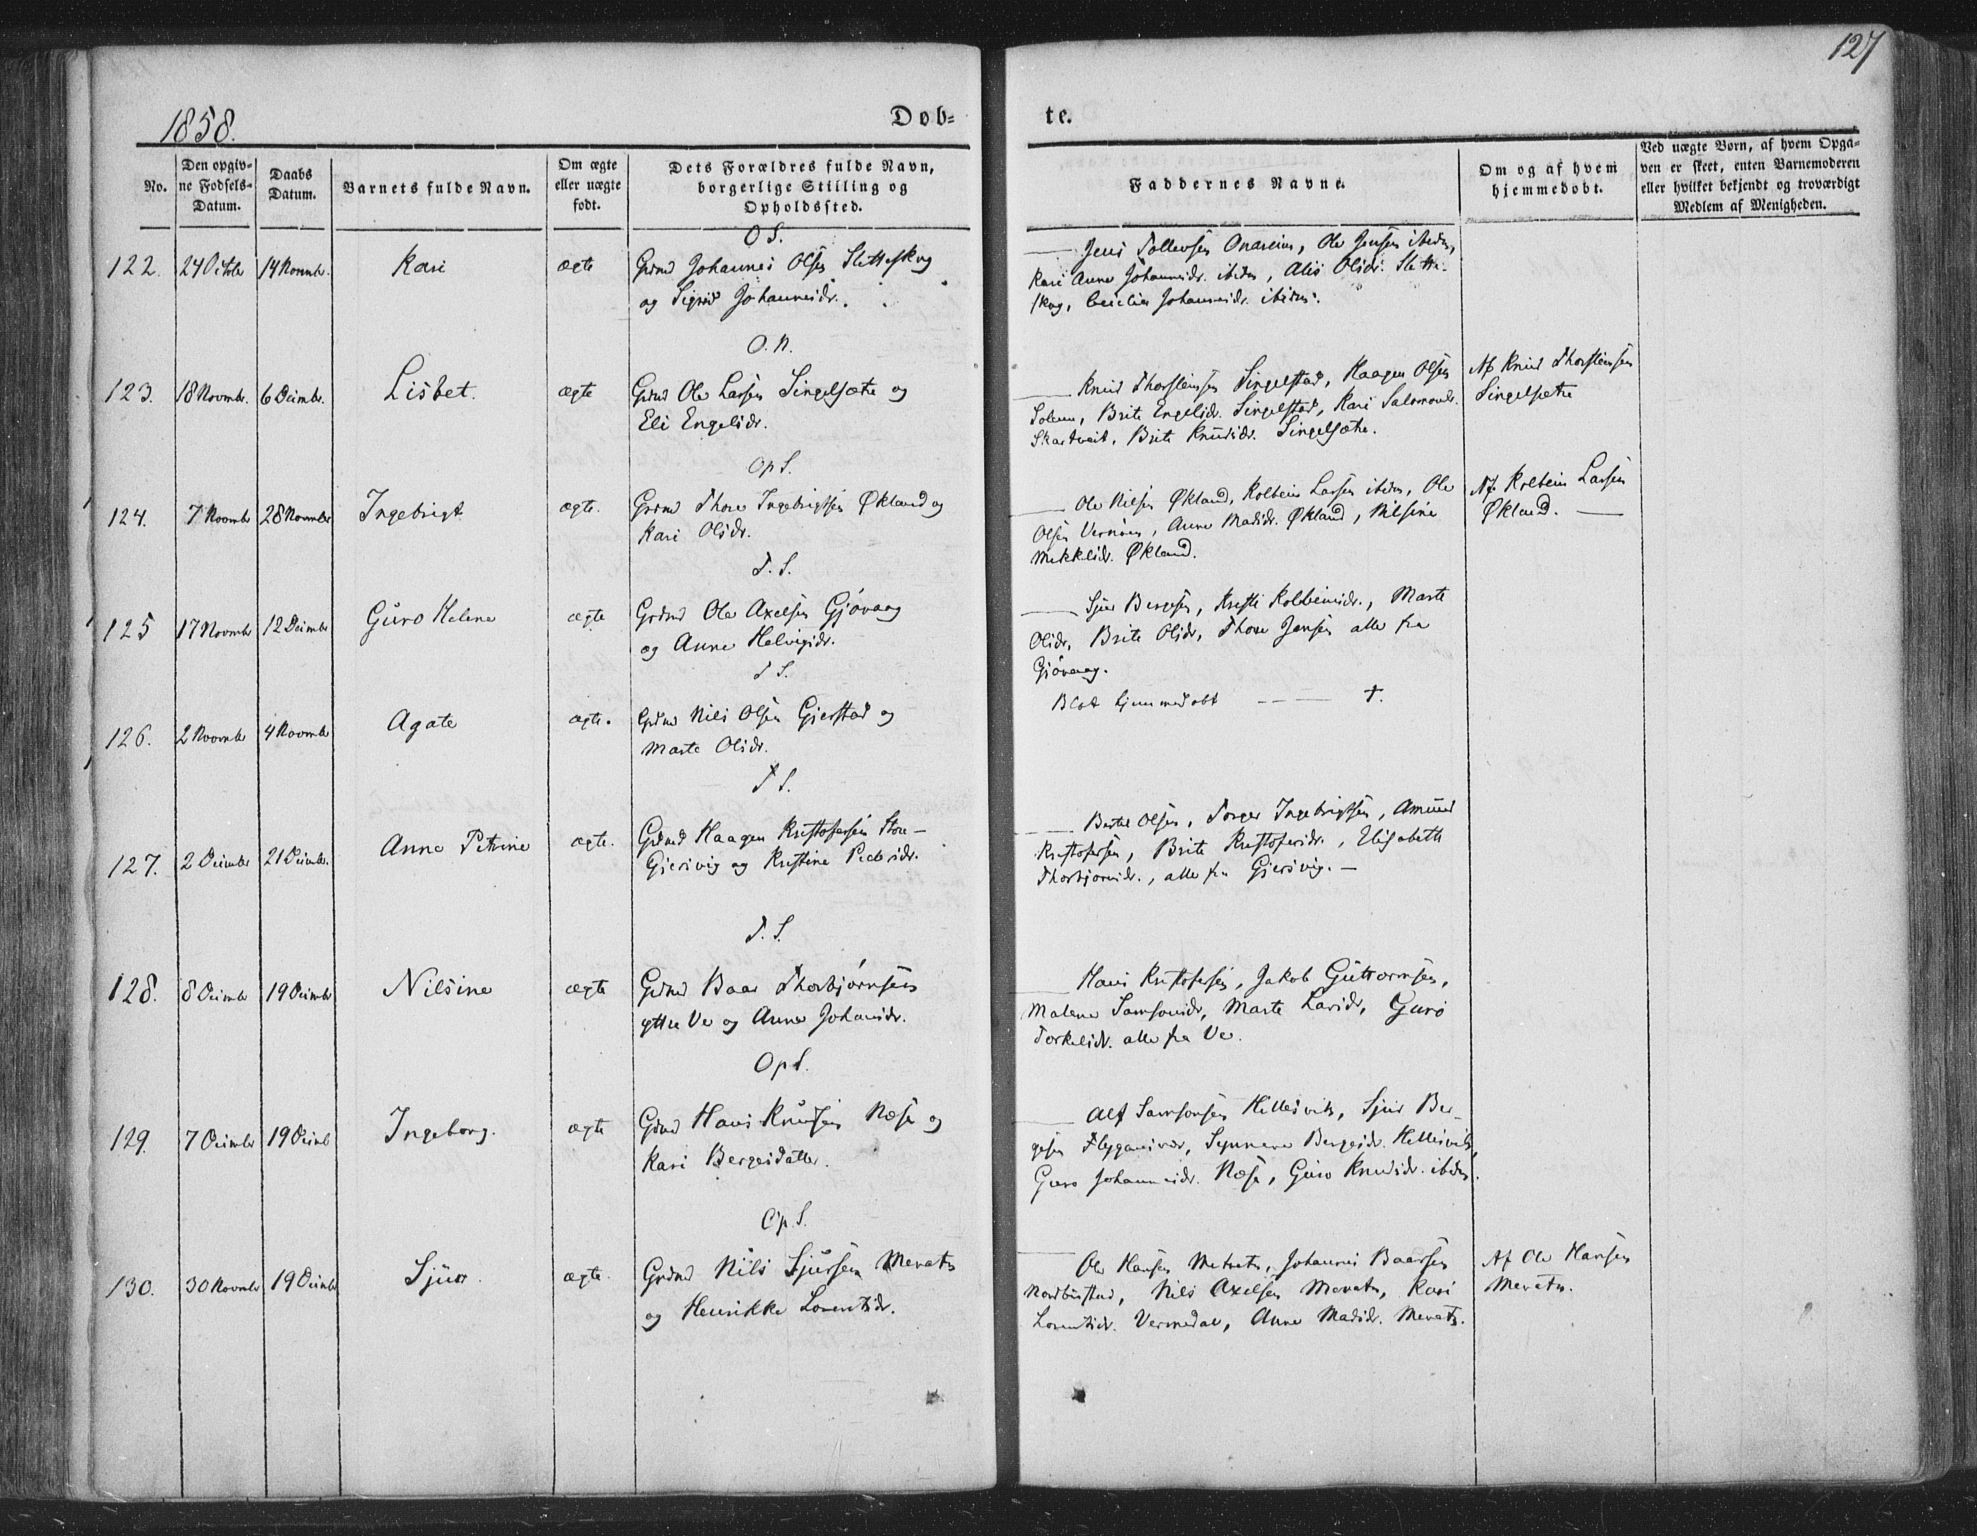 127
1858.
Døb=
te.
No.
Den opgiv=
ne Fødsels=
Datum.
Daabs
Datum.
Barnets fulde Navn.
Om ægte
eller uægte
født.
Dets Forældres fulde Navn,
borgerlige Stilling og
Opholdssted.
Faddernes Navne.
Om og af hvem
hjemmedøbt.
Ved uægte Børn, af hvem Opga=
ven er skeet, enten Barnemoderen
eller hvilket bekjendt og troværdigt
Medlem af Menigheden.
O S.
122. 24 Octbr 14 Novmbr. Kari ægte Grdmd Johannes Olsen Sletteskog
og Sigrid Johannesdr.
Jens Tollevsen Onareim, Ole Jensen ibidm,
Kari Anna Johannesdr. ibidm, Alis Olsdr. Slette-
skog, Cecilia Johannesdr. ibidm.
O. N.
123. 18 Novmbr. 6 Decmbr. Lisbet. ægte Grdmd Ole Larsen Singelsæthe og
Eli Engelsdr.
Knud Thorsteinsen Singelstad, Haagen Olsen
Soleim, Brite Engelsdr. Singelstad, Kari Salomonsdr.
Skartveit, Brite Knudsdr. Singelsæthe.
Af Knud Thorsteinsen
Singelsæthe
Op S.
124. 7 Novmbr 28 Novmbr Ingebrigt ægte. Grdmd Thore Ingebrigtsen Økland og
Kari Olsdr.
Ole Nilsen Økland, Kolbein Larsen ibidm, Ole
Olsen Vernøen, Anna Madsdr. Økland, Nilsine
Mikkelsdr. Økland.
Af Kolbein Larsen
Økland.
T. S.
125 17 Novmbr 12 Decmbr Guro Helene ægte Grdmd Ole Axelsen Gjøvaag
og Anna Helvigsdr.
Sjur Bergesen, Kristi Kolbeinsdr., Marte
Olsdr, Brite Olsdr, Thore Jensen alle fra
Gjøvaag.
T S.
126. 2 Novmbr 4 Novmbr Agate ægte. Grdmd Nils Olsen Gjerstad og
Marte Olsdr.
Blot hjemmedøbt †.
T S.
127. 2 Decmbr 21 Decmbr. Anne Petrine ægte. Grdmd Haagen Kristofersen Store-
Gjersvig og Kristine Pedersdr.
Bertel Olsen, Torger Ingebrigtsen, Amund
Kristofersen, Brite Kristofersdr., Elisabeth
Thorbjørnsdr., alle fra Gjersvig.
T. S.
128. 8 Decmbr 19 Decmbr Nilsine ægte Grdmd Baar Thorbjørnsen
yttre Ve og Anna Johansdr.
Hans Kristofersen, Jakob Guttormsen,
Malena Samsonsdr, Marte Larsdr, Guro
Torkelsdr. alle fra Ve.
Op S.
129. 7 Decmbr 19 Decmbr Ingeborg. ægte Grdmd Hans Knudsen Næse og
Kari Bergesdatter.
Alf Samsonsen Hillesvik, Sjur Ber-
gesen Flygansvær, Synneva Bergesdr. Hillesvik,
Guro Johannesdr. Næse, Guro Knudsdr. ibidm.
Op S.
130. 30 Novmbr 19 Decmbr Sjur. ægte. Grdmd Nils Sjursen Mevatn
og Henrikke Lorentsdr.
Ole Hansen Mevatn, Johannes Baarsen
Nordbustad, Nils Axelsen Mevatn, Kari
Lorentsdr. Vermedal, Anna Madsdr. Mevatn.
Af Ole Hansen
Mevatn.